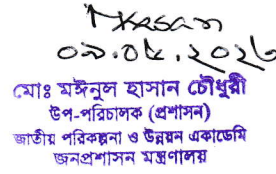 ০৯.০৮.২০২৩
মোঃ মঈনুল হাসান চৌধুরী
উপ-পরিচালক (প্রশাসন)
জাতীয় পরিকল্পনা ও উন্নয়ন একাডেমি
জনপ্রশাসন মন্ত্রণালয়